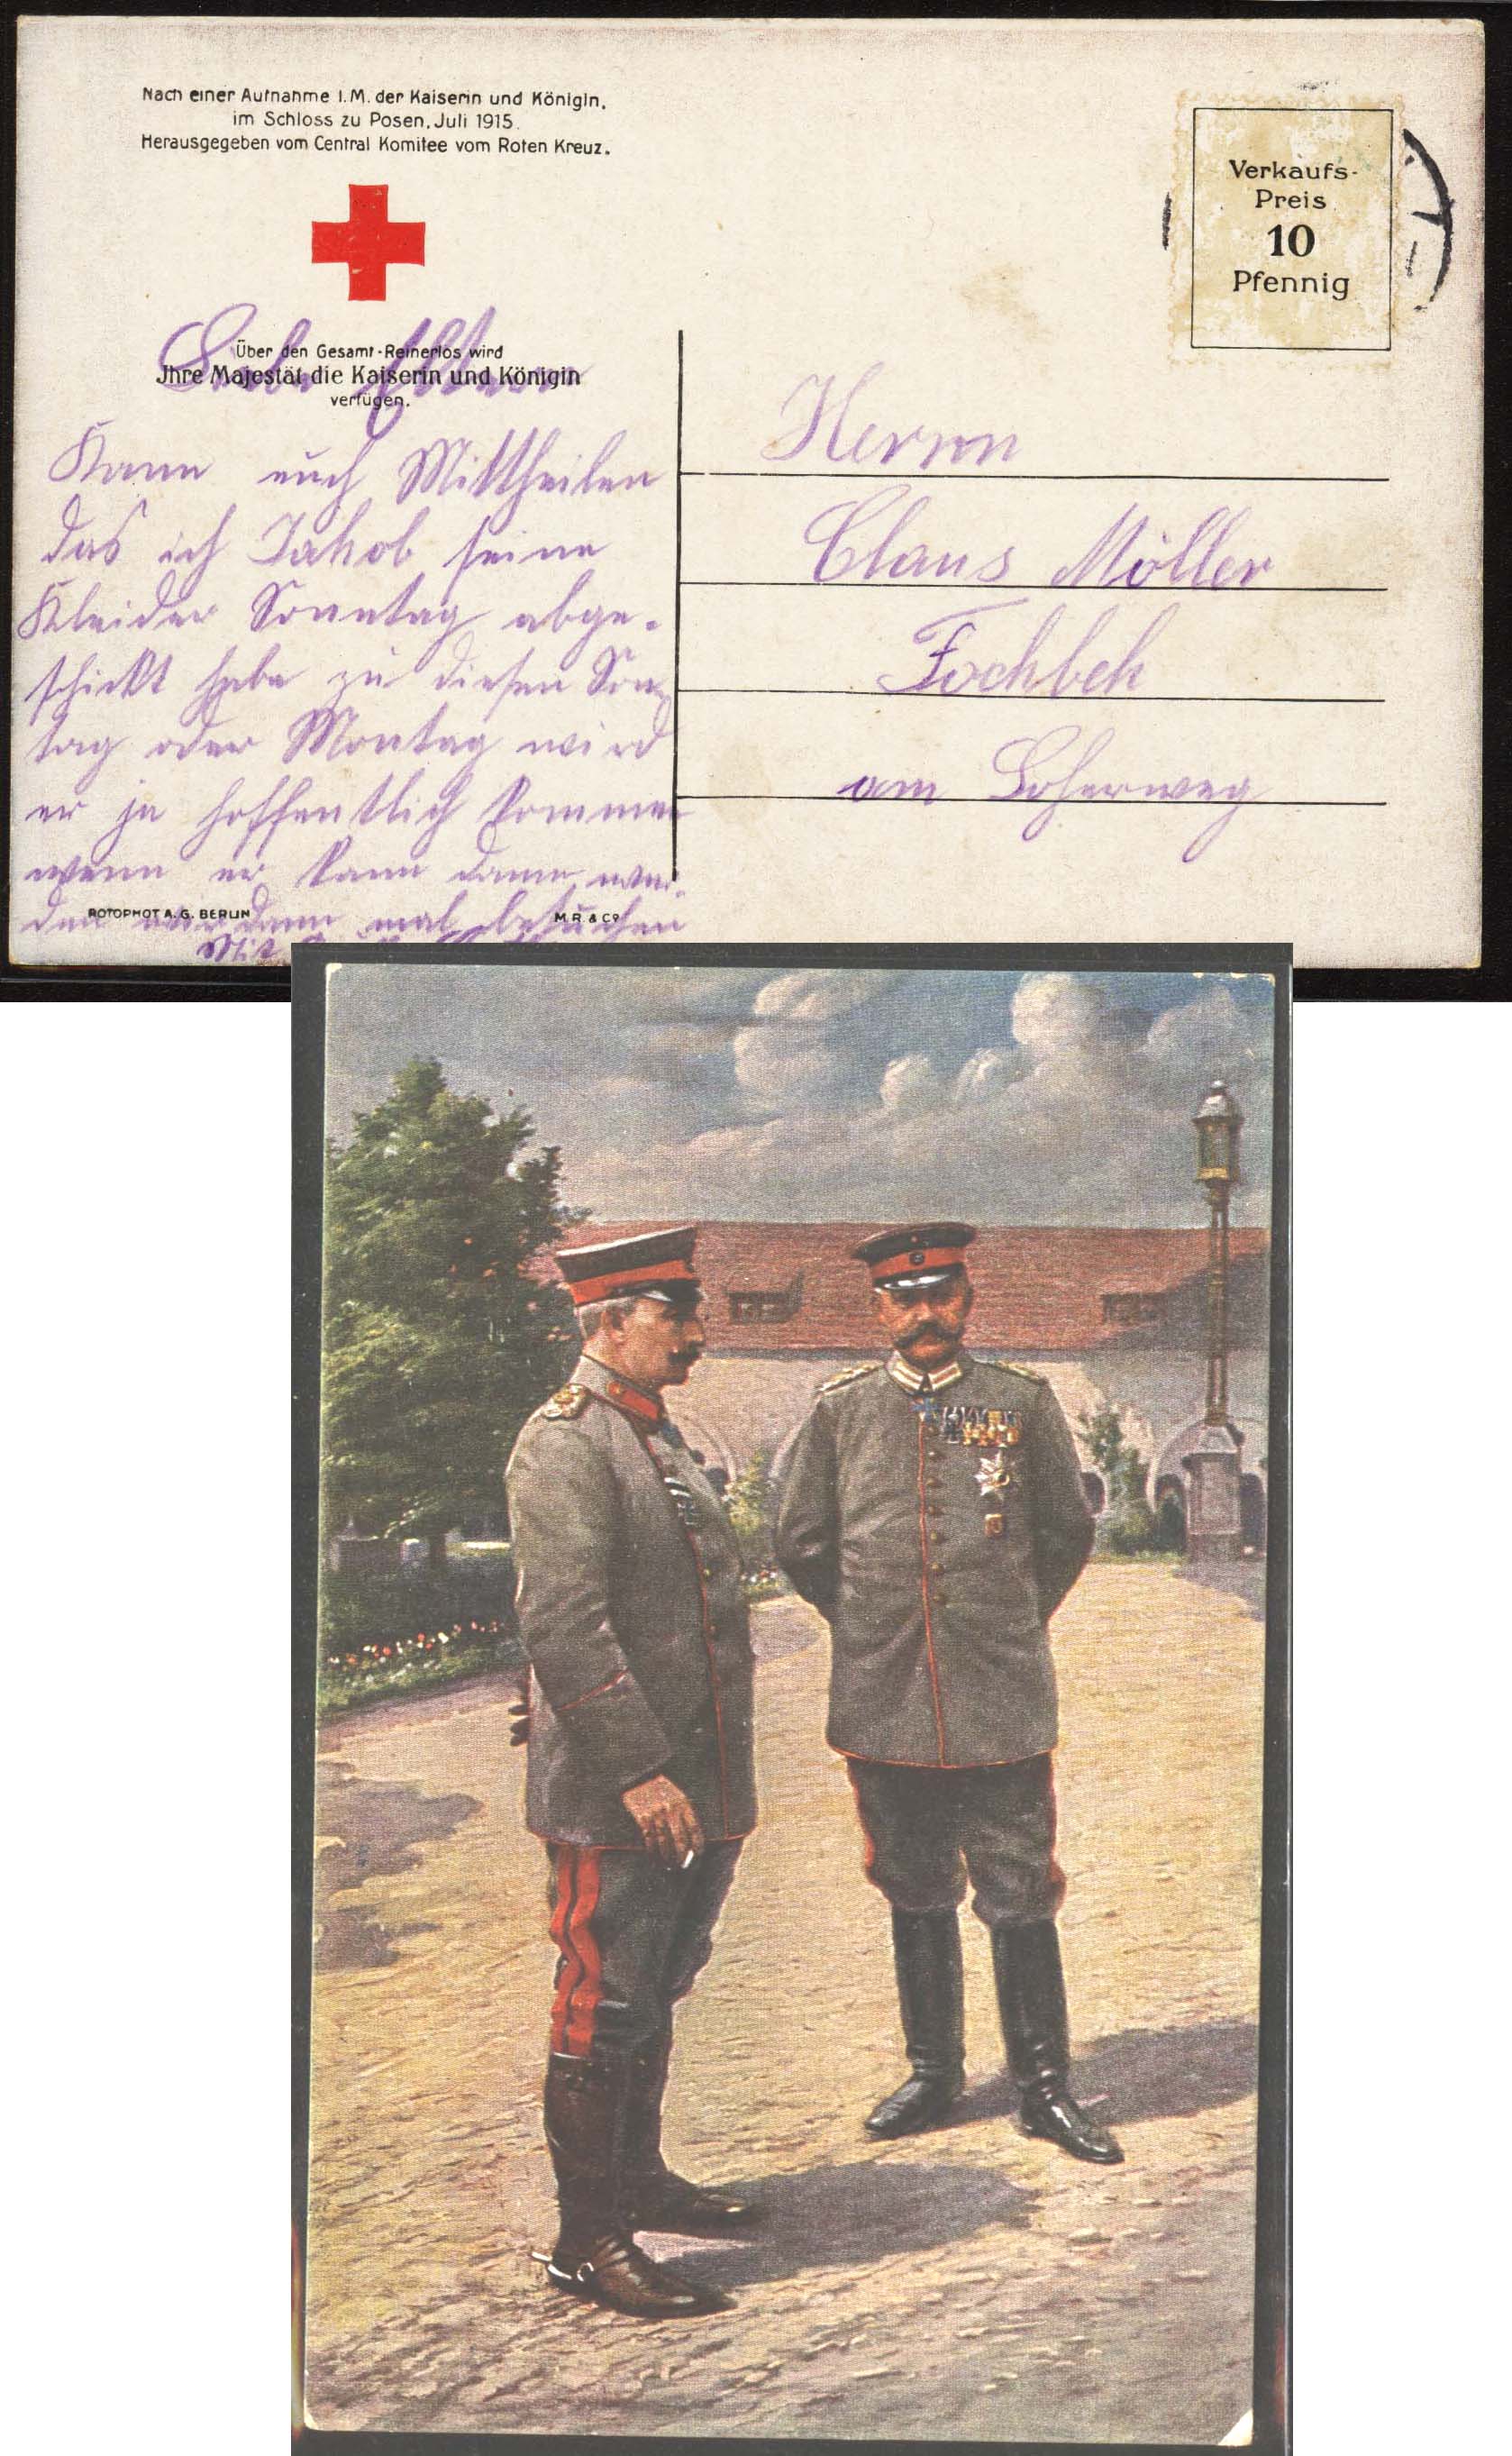 Nach einer Aufnahme I.M. der Kaiserin und Königin,
im Schloss zu Posen, Juli 1915.
Herausgegeben vom Central Komitee vom Roten Kreuz.
Verkaufs-
Preis
10
Pfennig
Über den Gesamt-Reinerlös wird
Jhre Majestät die Kaiserin und Königin
verfügen.
Liebe Eltern
Kann euch Mittheilen
das ich Jakob seine
Kleider Sonntag abge-
schickt habe zu diesen Son
tag oder Montag wird
er ja hoffentlich kommen
wenn er kann dann wer-
den wir dann mal besuchen
Mit
Herrn
Claus Möller
Fockbek
am Loherweg
ROTOPHOT A.G. BERLIN
M.R. & Co